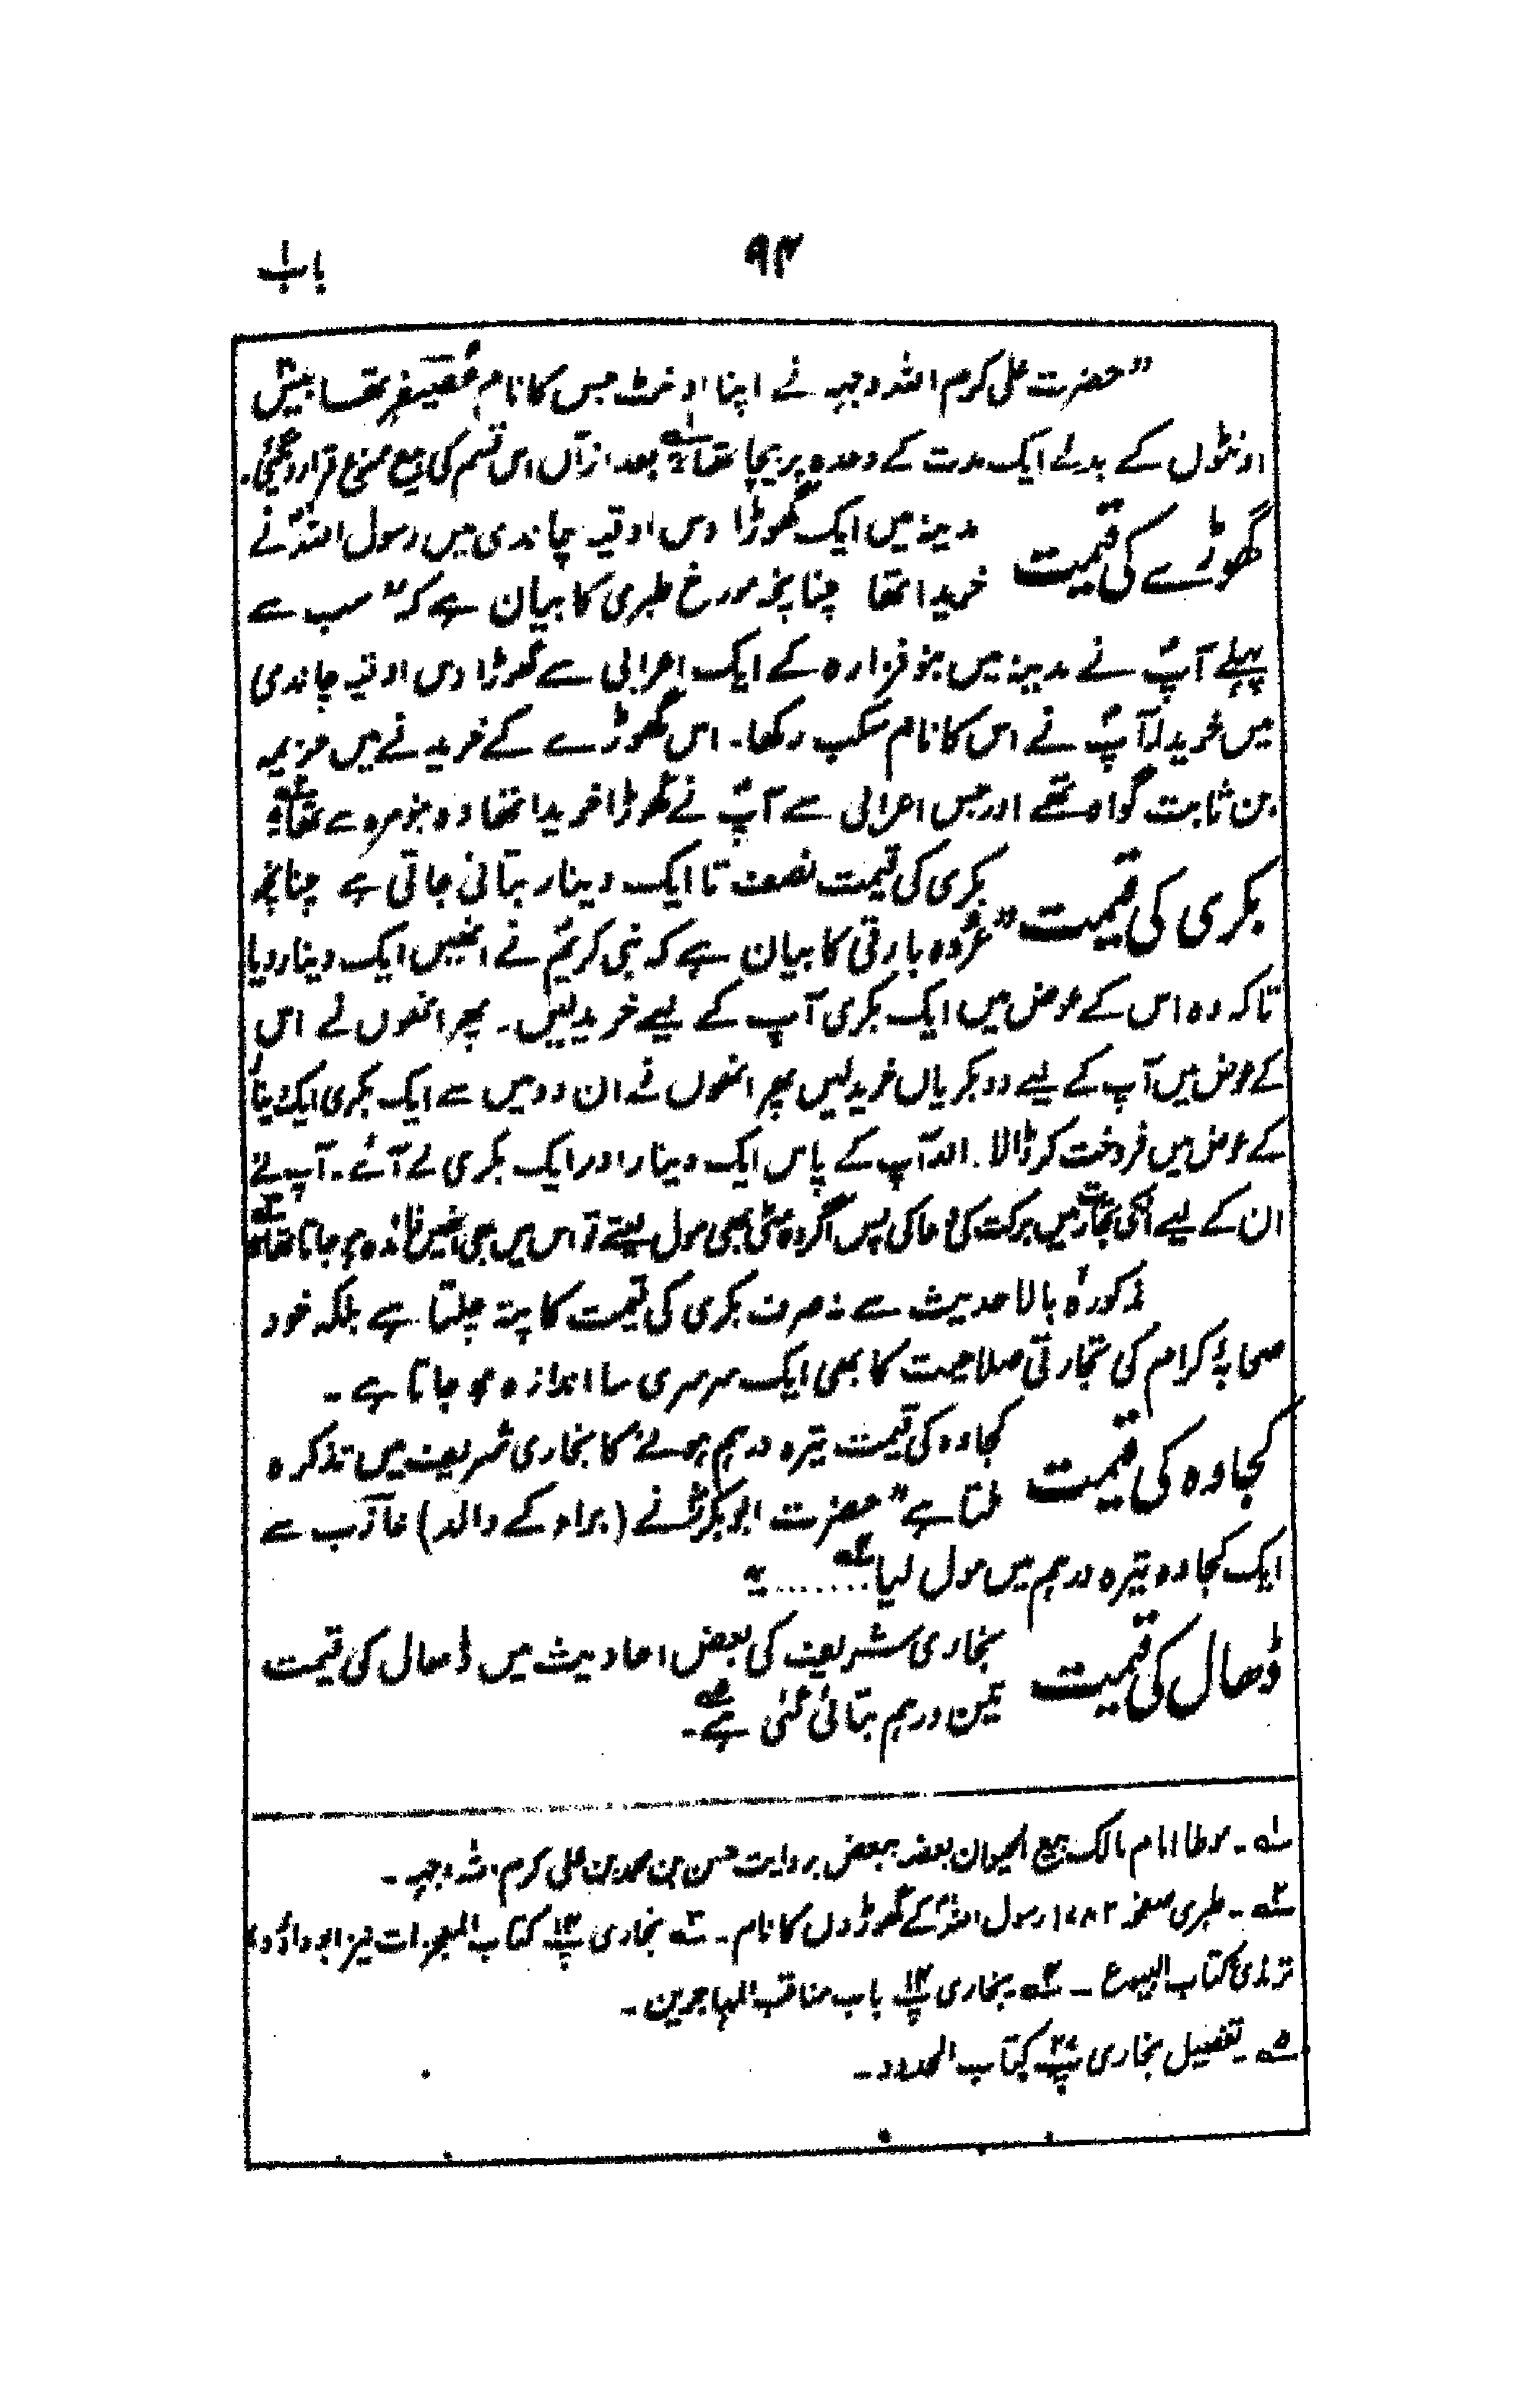 ۹۴
باب ۱
”حضرت علی کرم اللہ وجہہ نے اپنا اونٹ جس کا نام عُصَیفِر تھا بیس
اونٹوں کے بدلے ایک مدت کے وعدہ پر بیچا تھا“ ۱ بعد ازاں اس قسم کی بیع ممنوع قرار دی گئی۔
گھوڑے کی قیمت
مدینہ میں ایک گھوڑا دس اوقیہ چاندی میں رسول اللہؐ نے
خریدا تھا چنانچہ مورخ طبری کا بیان ہے کہ ”سب سے
پہلے آپؐ نے مدینہ میں بنو فزارہ کے ایک اعرابی سے گھوڑا دس اوقیہ چاندی
میں خریدا۔ آپؐ نے اس کا نام سکب رکھا۔ اس گھوڑے کے خریدنے میں خزیمہ
بن ثابت گواہ تھے اور جس اعرابی سے آپؐ نے گھوڑا خریدا تھا وہ بنو مرہ سے تھا“ ۲
بکری کی قیمت
بکری کی قیمت نصف تا ایک دینار بتائی جاتی ہے چنانچہ
”عُروہ بارقی کا بیان ہے کہ نبی کریمؐ نے انھیں ایک دینار دیا
تاکہ وہ اس کے عوض میں ایک بکری آپ کے لیے خریدلیں۔ پھر انھوں نے اس
کے عوض میں آپ کے لیے دو بکریاں خریدلیں پھر انھوں نے ان دو میں سے ایک بکری ایک دینار
کے عوض میں فروخت کر ڈالا۔ اور آپ کے پاس ایک دینار اور ایک بکری لے آئے۔ آپ نے
ان کے لیے انکی تجارت میں برکت کی دعا کی پس اگر وہ مٹی بھی مول لیتے تو اس میں بھی انھیں فائدہ ہو جاتا تھا“ ۳
مذکورۂ بالا حدیث سے نہ صرف بکری کی قیمت کا پتہ چلتا ہے بلکہ خود
صحابۂ کرام کی تجارتی صلاحیت کا بھی ایک سرسری سا اندازہ ہو جاتا ہے۔
کجاوہ کی قیمت
کجاوہ کی قیمت تیرہ درہم ہونے کا بخاری شریف میں تذکرہ
ملتا ہے ”حضرت ابوبکرؓ نے (براء کے والد) عازب سے
ایک کجاوہ تیرہ درہم میں مول لیا ۴........“
ڈھال کی قیمت
بخاری شریف کی بعض احادیث میں ڈھال کی قیمت
تین درہم بتائی گئی ہے ۵۔
۱۔ موطا امام مالک بیع الحیوان بعضہ ببعض بروایت حسن بن محمد بن علی کرم اللہ وجہہ۔
۲۔ طبری صفحہ ۱۷۸۲ رسول اللہؐ کے گھوڑوں کا نام۔ ۳ بخاری پ۱۴ کتاب المعجزات نیز ابو داؤد،
ترمذی کتاب البیوع۔ ۴۔ بخاری پ۱۴ باب مناقب المہاجرین۔
۵۔ تفصیل بخاری پ۲۷ کتاب الحدود۔